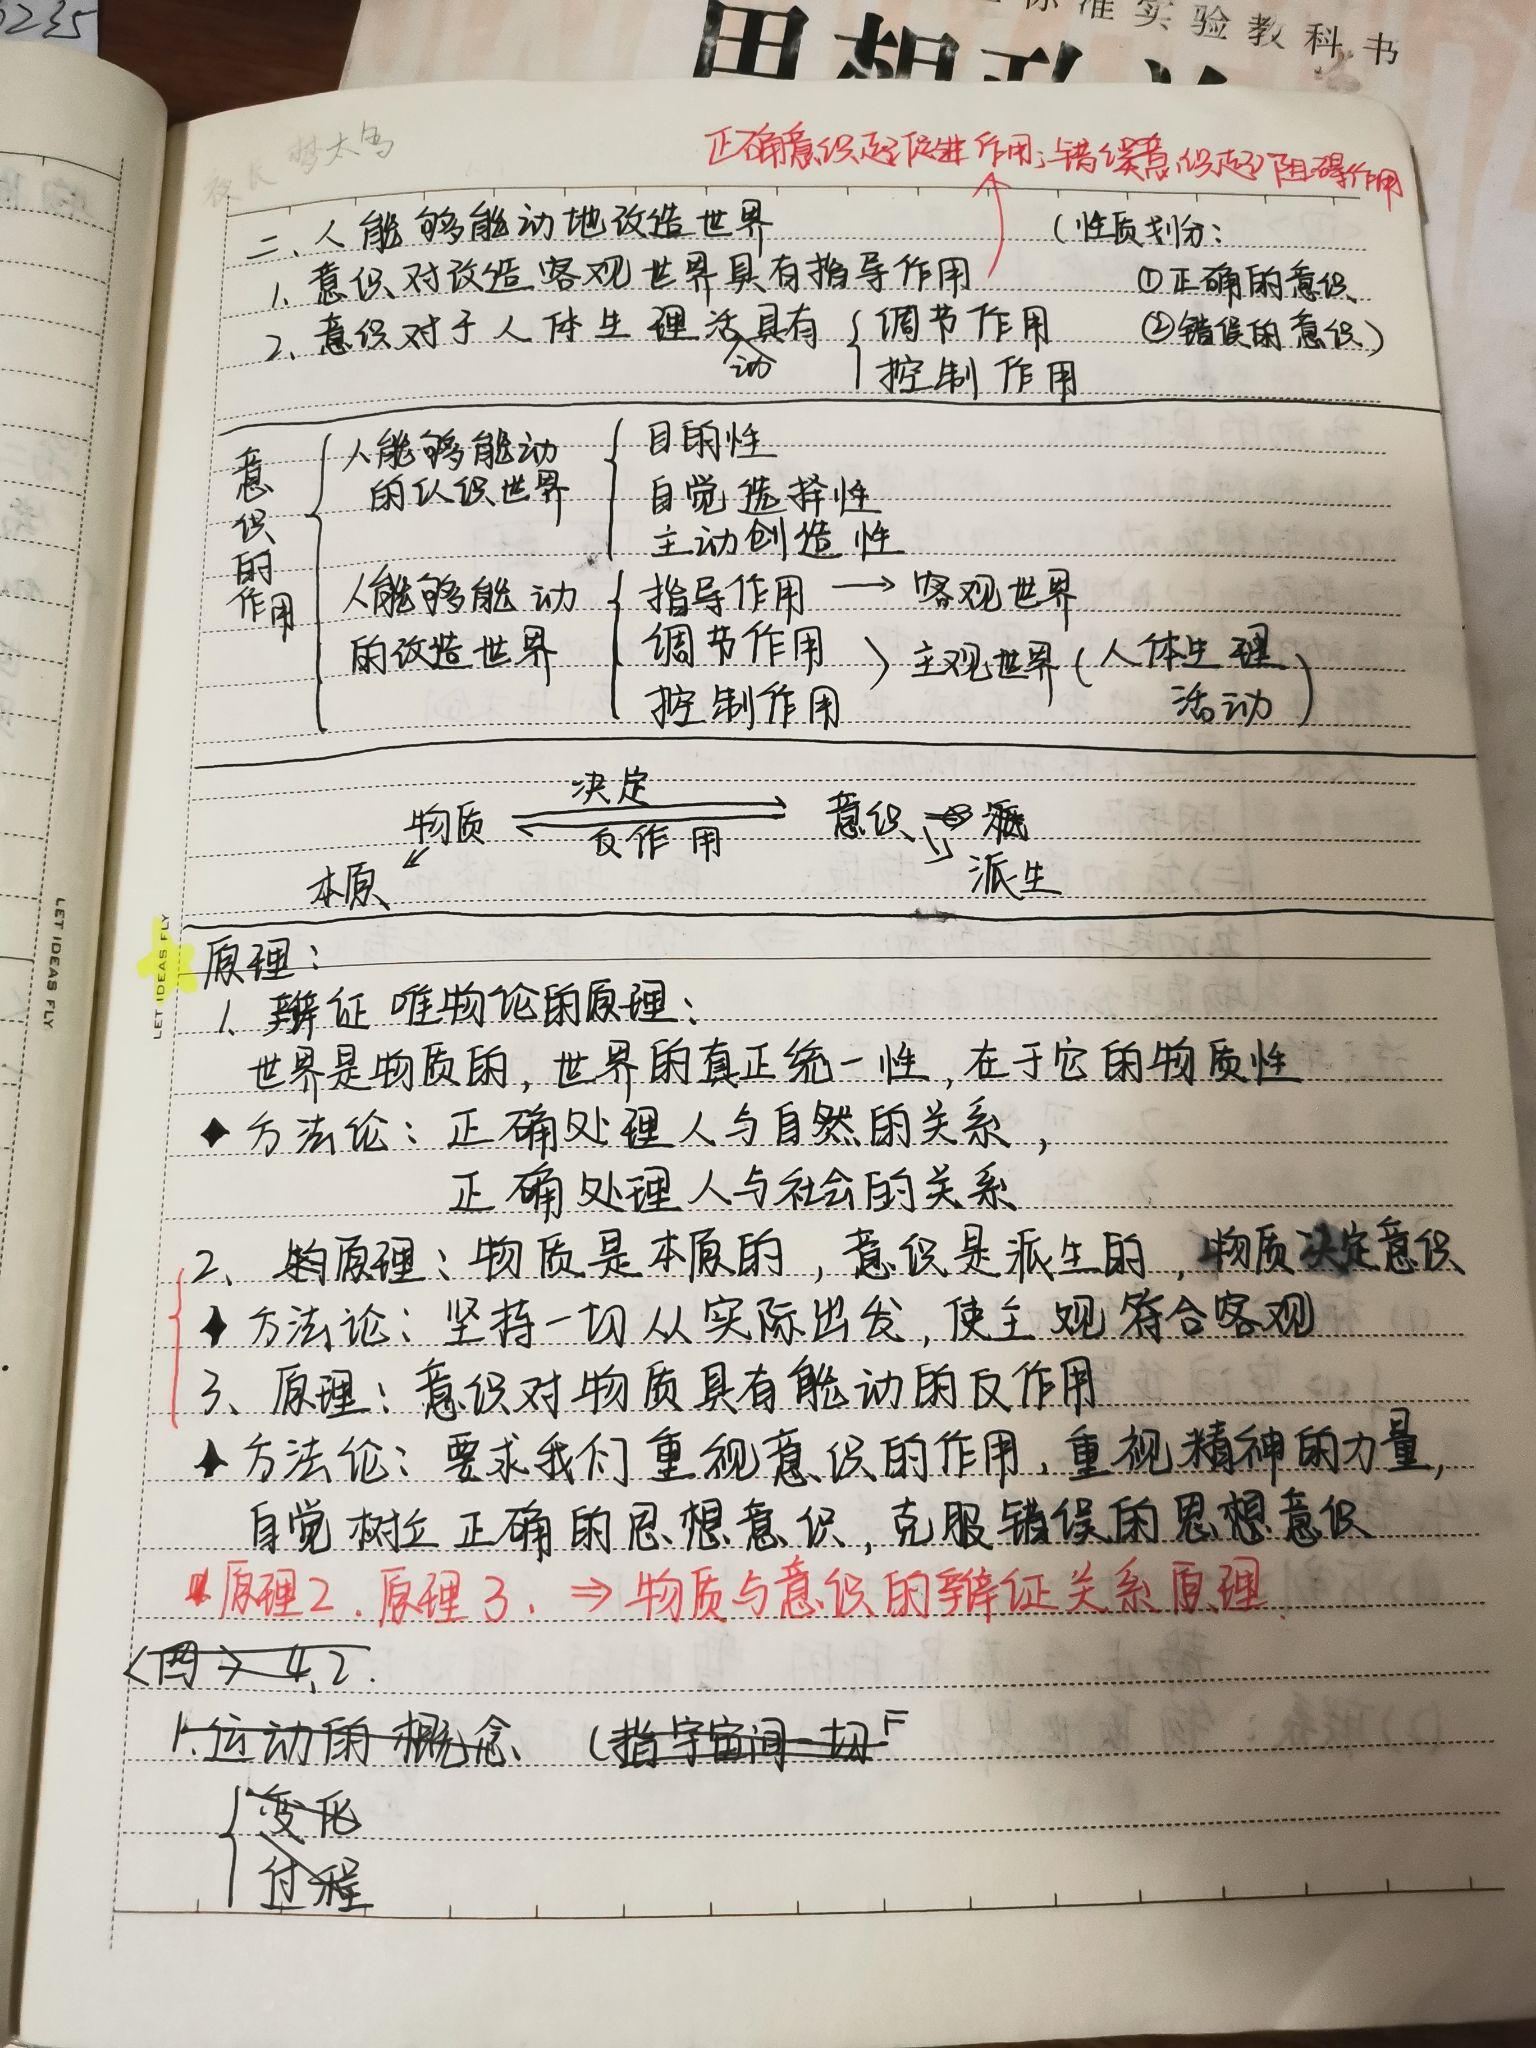 标准实验教科书
思想政治
夜长梦太多
正确意识起促进作用;错误意识起阻碍作用
二、人能够能动地改造世界
(性质划分:
1、意识对改造客观世界具有指导作用
①正确的意识
2、意识对于人体生理活动具有
调节作用
控制作用
②错误的意识)
意识的作用
人能够能动
的认识世界
目的性
自觉选择性
主动创造性
人能够能动
的改造世界
指导作用 → 客观世界
调节作用
控制作用
主观世界(人体生理
活动)
决定
物质 意识
反作用
本原 派生
LET IDEAS FLY
LET IDEAS FLY
原理:
1、辩证唯物论的原理:
世界是物质的,世界的真正统一性,在于它的物质性
方法论:正确处理人与自然的关系,
正确处理人与社会的关系
2、原理:物质是本原的,意识是派生的,物质决定意识
方法论:坚持一切从实际出发,使主观符合客观
3、原理:意识对物质具有能动的反作用
方法论:要求我们重视意识的作用,重视精神的力量,
自觉树立正确的思想意识,克服错误的思想意识
原理2.原理3. ⇒ 物质与意识的辩证关系原理
4.2.
1.运动的概念 (指宇宙间一切
变化
过程